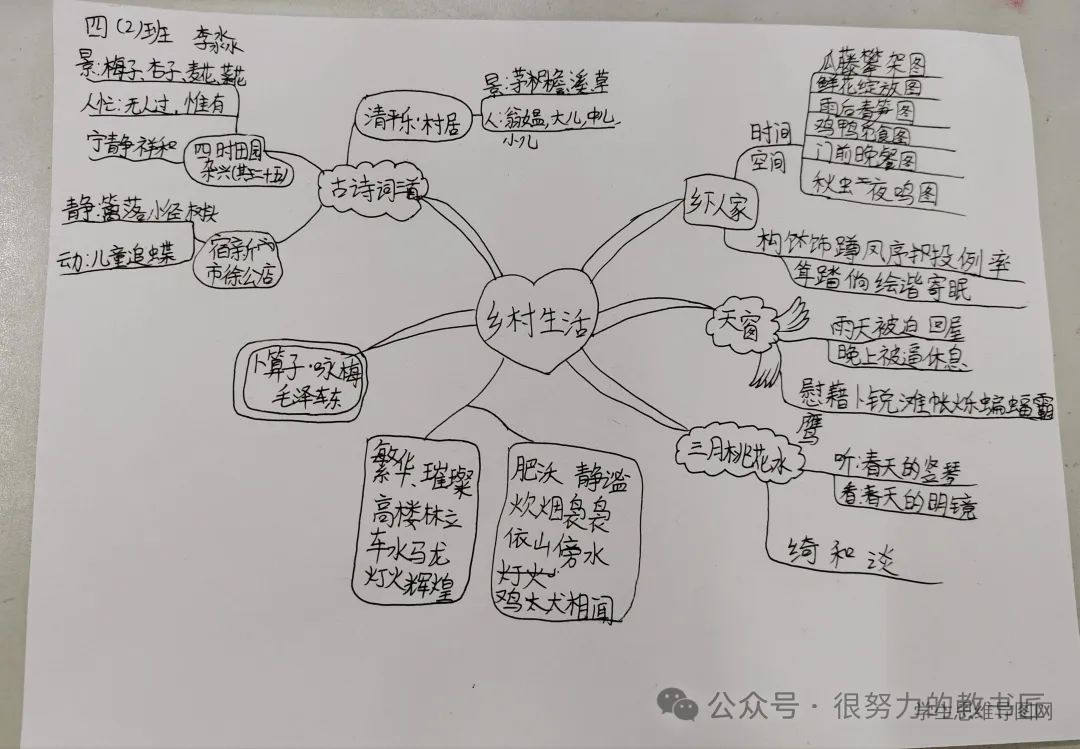 四(2)班 李淼
景:梅子、杏子、麦花、菜花
人忙:无人过,惟有
宁静祥和
四时田园
杂兴(其二十五)
清平乐·村居
景:茅檐溪草
人:翁媪,大儿,中儿
小儿
古诗词三首
静:篱落小径树头
动:儿童追蝶
宿新
市徐公店
乡村生活
卜算子·咏梅
毛泽东
繁华、璀璨
高楼林立
车水马龙
灯火辉煌
肥沃 静谧
炊烟袅袅
依山傍水
灯火
鸡太犬相闻
乡下人家
时间
空间
瓜藤攀架图
鲜花绽放图
雨后春笋图
鸡鸭觅食图
门前晚餐图
秋虫夜鸣图
构饰蹲凤序例率
耸踏倘绘谐寄眠
天窗
雨天被迫回屋
晚上被逼休息
慰藉卜锐滩帐烁蝙蝠霸
鹰
三月桃花水
听:春天的竖琴
看:春天的明镜
绮和谈
公众号·很努力的教书匠
学生思维导图网